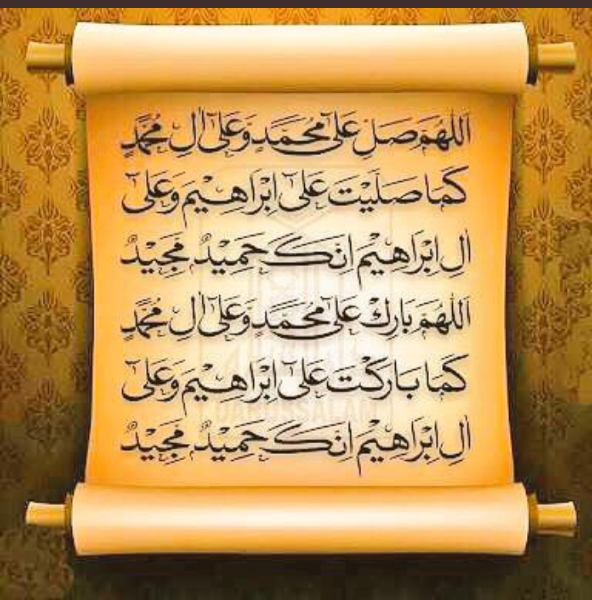 اللهم صل على محمد وعلى ال محمد
كما صليت على ابراهيم وعلى
ال ابراهيم انك حميد مجيد
اللهم بارك على محمد وعلى ال محمد
كما باركت على ابراهيم وعلى
ال ابراهيم انك حميد مجيد
DARUSSALAM